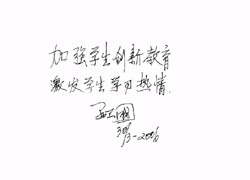 加强学生创新教育
激发学生学习热情.
30/3-2006